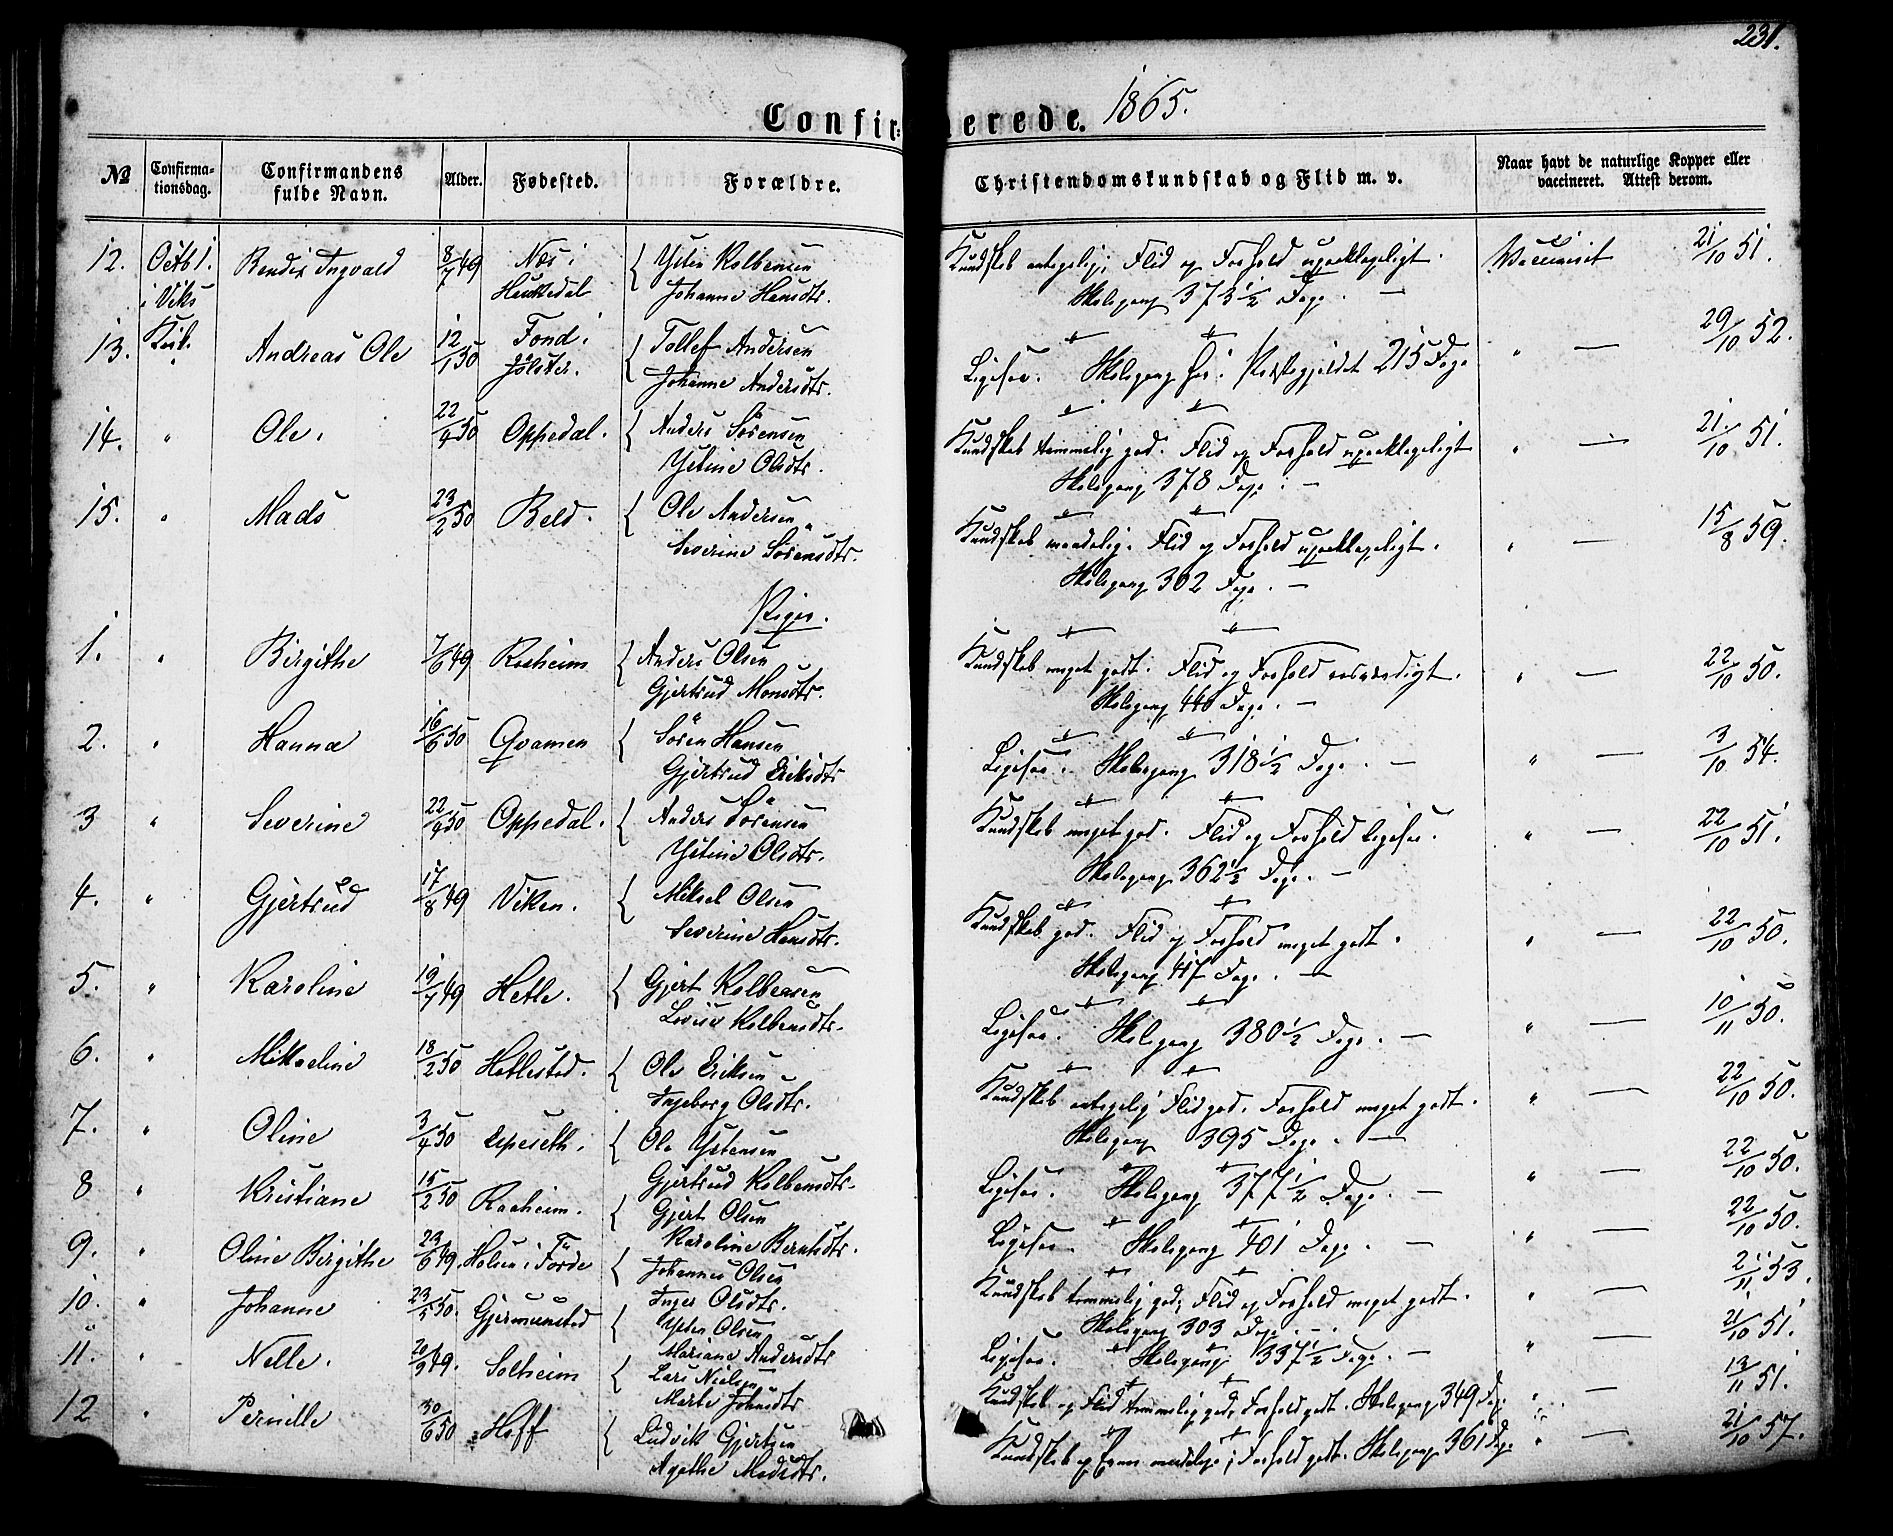 231.
Confirmerede. 1865.
№ Confirmationsdag. Confirmandens fulde Navn. Alder. Fødested. Forældre. Christendomskundskab og Flid m. v. Naar havt de naturlige Kopper eller vaccineret. Attest derom.
12. Octb 1. Bendix Ingvald 8/7 49 Næs i { Ysten Kolbensen Kundskab antagelig; Flid og Forhold upaaklageligt. Vaccineret 21/10 51.
i Viks Haukedal Johanne Hansdtr. Skolegang 373 1/2 Dage. —
13. Kirk. Andreas Ole 12/1 50 Fond i { Tollef Andersen
Jølster. Johanne Andersdtr. Ligesaa. Skolegang her i Præstegjeldet 215 Dage " — 29/10 52.
14. " Ole. 22/4 50 Oppedal. { Anders Sørensen Kundskab temmelig god. Flid og Forhold upaaklageligt " — 21/10 51.
Ystine Olsdtr. Skolegang 378 Dage. —
15. " Mads 23/2 50 Beld. { Ole Andersen Kundskab maadelig. Flid og Forhold upaaklageligt. " — 15/8 59.
Severine Sørensdtr. Skolegang 302 Dage. —
Piger.
1. " Birgithe 7/6 49 Raaheim { Anders Olsen Kundskab meget godt. Flid og Forhold rosværdigt. " — 22/10 50.
Gjertrud Monsdtr. Skolegang 440 Dage. —
2. " Hanna 16/6 50 Qvamen { Søren Hansen Ligesaa. Skolegang 318 1/2 Dage. — " — 3/10 54.
Gjertrud Eriksdtr
3 " Severine 22/4 50 Oppedal. { Anders Sørensen Kundskab meget god. Flid og Forhold ligesaa. " — 22/10 51.
Ystine Olsdtr. Skolegang 362 1/2 Dage. —
4. " Gjertrud 17/8 49 Viken. { Mikael Olsen Kundskab god. Flid og Forhold meget godt. " — 22/10 50.
Severine Hansdtr. Skolegang 417 Dage. —
5. " Karoline 19/7 49 Hetle. { Gjert Kolbensen Ligesaa. Skolegang 380 1/2 Dage. — " — 10/11 50.
Lovise Kolbensdtr.
6. " Mikaeline 18/2 50 Hetlestad. { Ole Eriksen Kundskab antagelig Flid god. Forhold meget godt. " — 22/10 50.
Ingeborg Olsdtr. Skolegang 395 Dage. —
7. " Oline 3/4 50 Espeseth. { Ole Ystensen Ligesaa. Skolegang 377 1/2 Dage. — " — 22/10 50.
Gjertrud Kolbensdtr.
8 " Kristiane 15/2 50 Raaheim. { Gjert Olsen Ligesaa. Skolegang 401 Dage. — " — 22/10 50.
Karoline Berntsdtr.
9. " Oline Birgithe 23/6 49. Holsen i Førde { Johannes Olsen Kundskab temmelig god; Flid og Forhold meget godt. " — 2/11 53.
Inger Olsdtr. Skolegang 303 Dage. —
10. " Johanne 23/5 50. Gjermunstad { Ysten Olsen Ligesaa. Skolegang 337 1/2 Dage. — " — 21/10 51.
Mariane Andersdtr
11. " Nelle. 20/3 49. Solheim { Lars Nielsen Kundskab og Flid temmelig god, Forhold godt. Skolegang 349 Dage " — 13/11 51.
Marte Johnsdtr
12 " Pernille 30/6 50 Hoff { Ludvik Gjertsen Kundskab og Evner maadelige; Forhold godt. Skolegang 361 Dage " — 21/10 57.
Agathe Madsdtr.